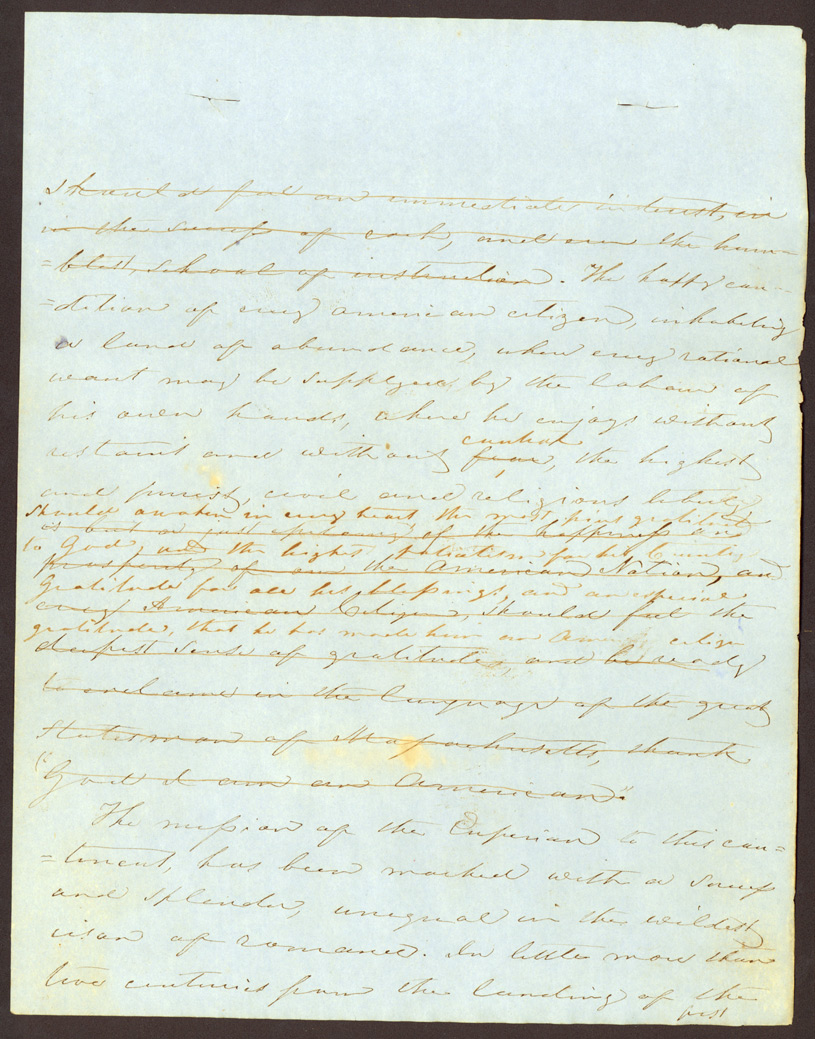 should feel an immediate interest, in
in the success of each, and even the hum-
=blest, school of instruction. The happy con-
=dition of every american citizen, inhabiting
a land of abundance, where every rational
want may be supplyed, by the labour of
his own hands, where he enjoys without
control
restraint and without fear, the highest
and purest, civil and religious liberty
should awaken in every heart the most pious gratitude
is but a just of the happiness and
to God, and the highest for his Country,
prosperity of our the American Nation, and
gratitude for all his blessings, and an especial
every American Citizen, should feel the
gratitude, that he has made him an American citizen
deepest sense of gratitude, and be ready
to exclame in the language of the great
statesman of Massachusetts, thank
"God I am an American".
The mission of the Euperian to this con=
=tinent, has been marked with a success
and splendor, unequal in the wildest
vison of romance. In little more than
two centuries from the landing of the
first